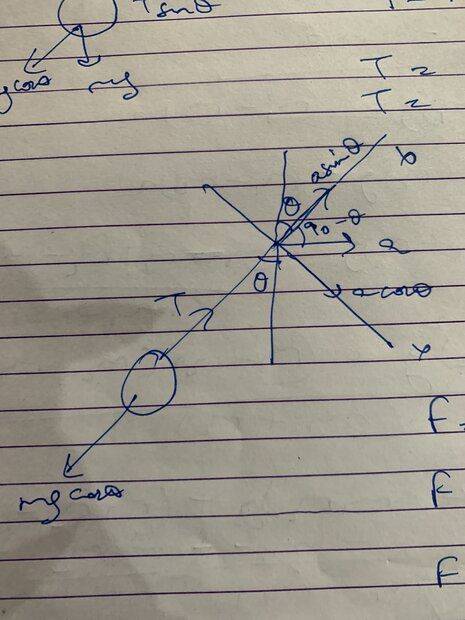 T sinθ
mg
T =
T =
a sinθ
b
θ
90-θ
a
θ
a cosθ
T
x
F =
mg cosθ
F
F